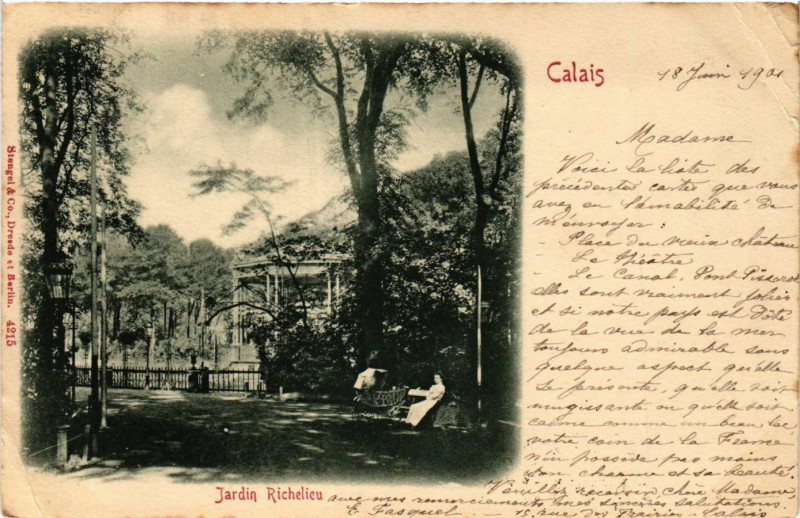 Calais
18 Juin 1901
Madame
Voici la liste des
précédentes cartes que vous
avez eu l'amabilité de
m'envoyer :
- Place du vieux château
- Le Théâtre
- Le Canal. Pont
elles sont vraiment jolies
et si notre pays est Dôté
de la vue de la mer
toujours admirable sous
quelque aspect qu'elle
se présente, qu'elle soit
mugissante ou qu'elle soit
calme comme un beau lac
votre coin de la France
n'en possède pas moins
son charme et sa beauté.
Veuillez recevoir, chère Madame,
avec mes remerciements mes sincères salutations.
E. Fasquel. 15 rue des Prairies. Calais
Jardin Richelieu
Stengel & Co., Dresde et Berlin. 4215